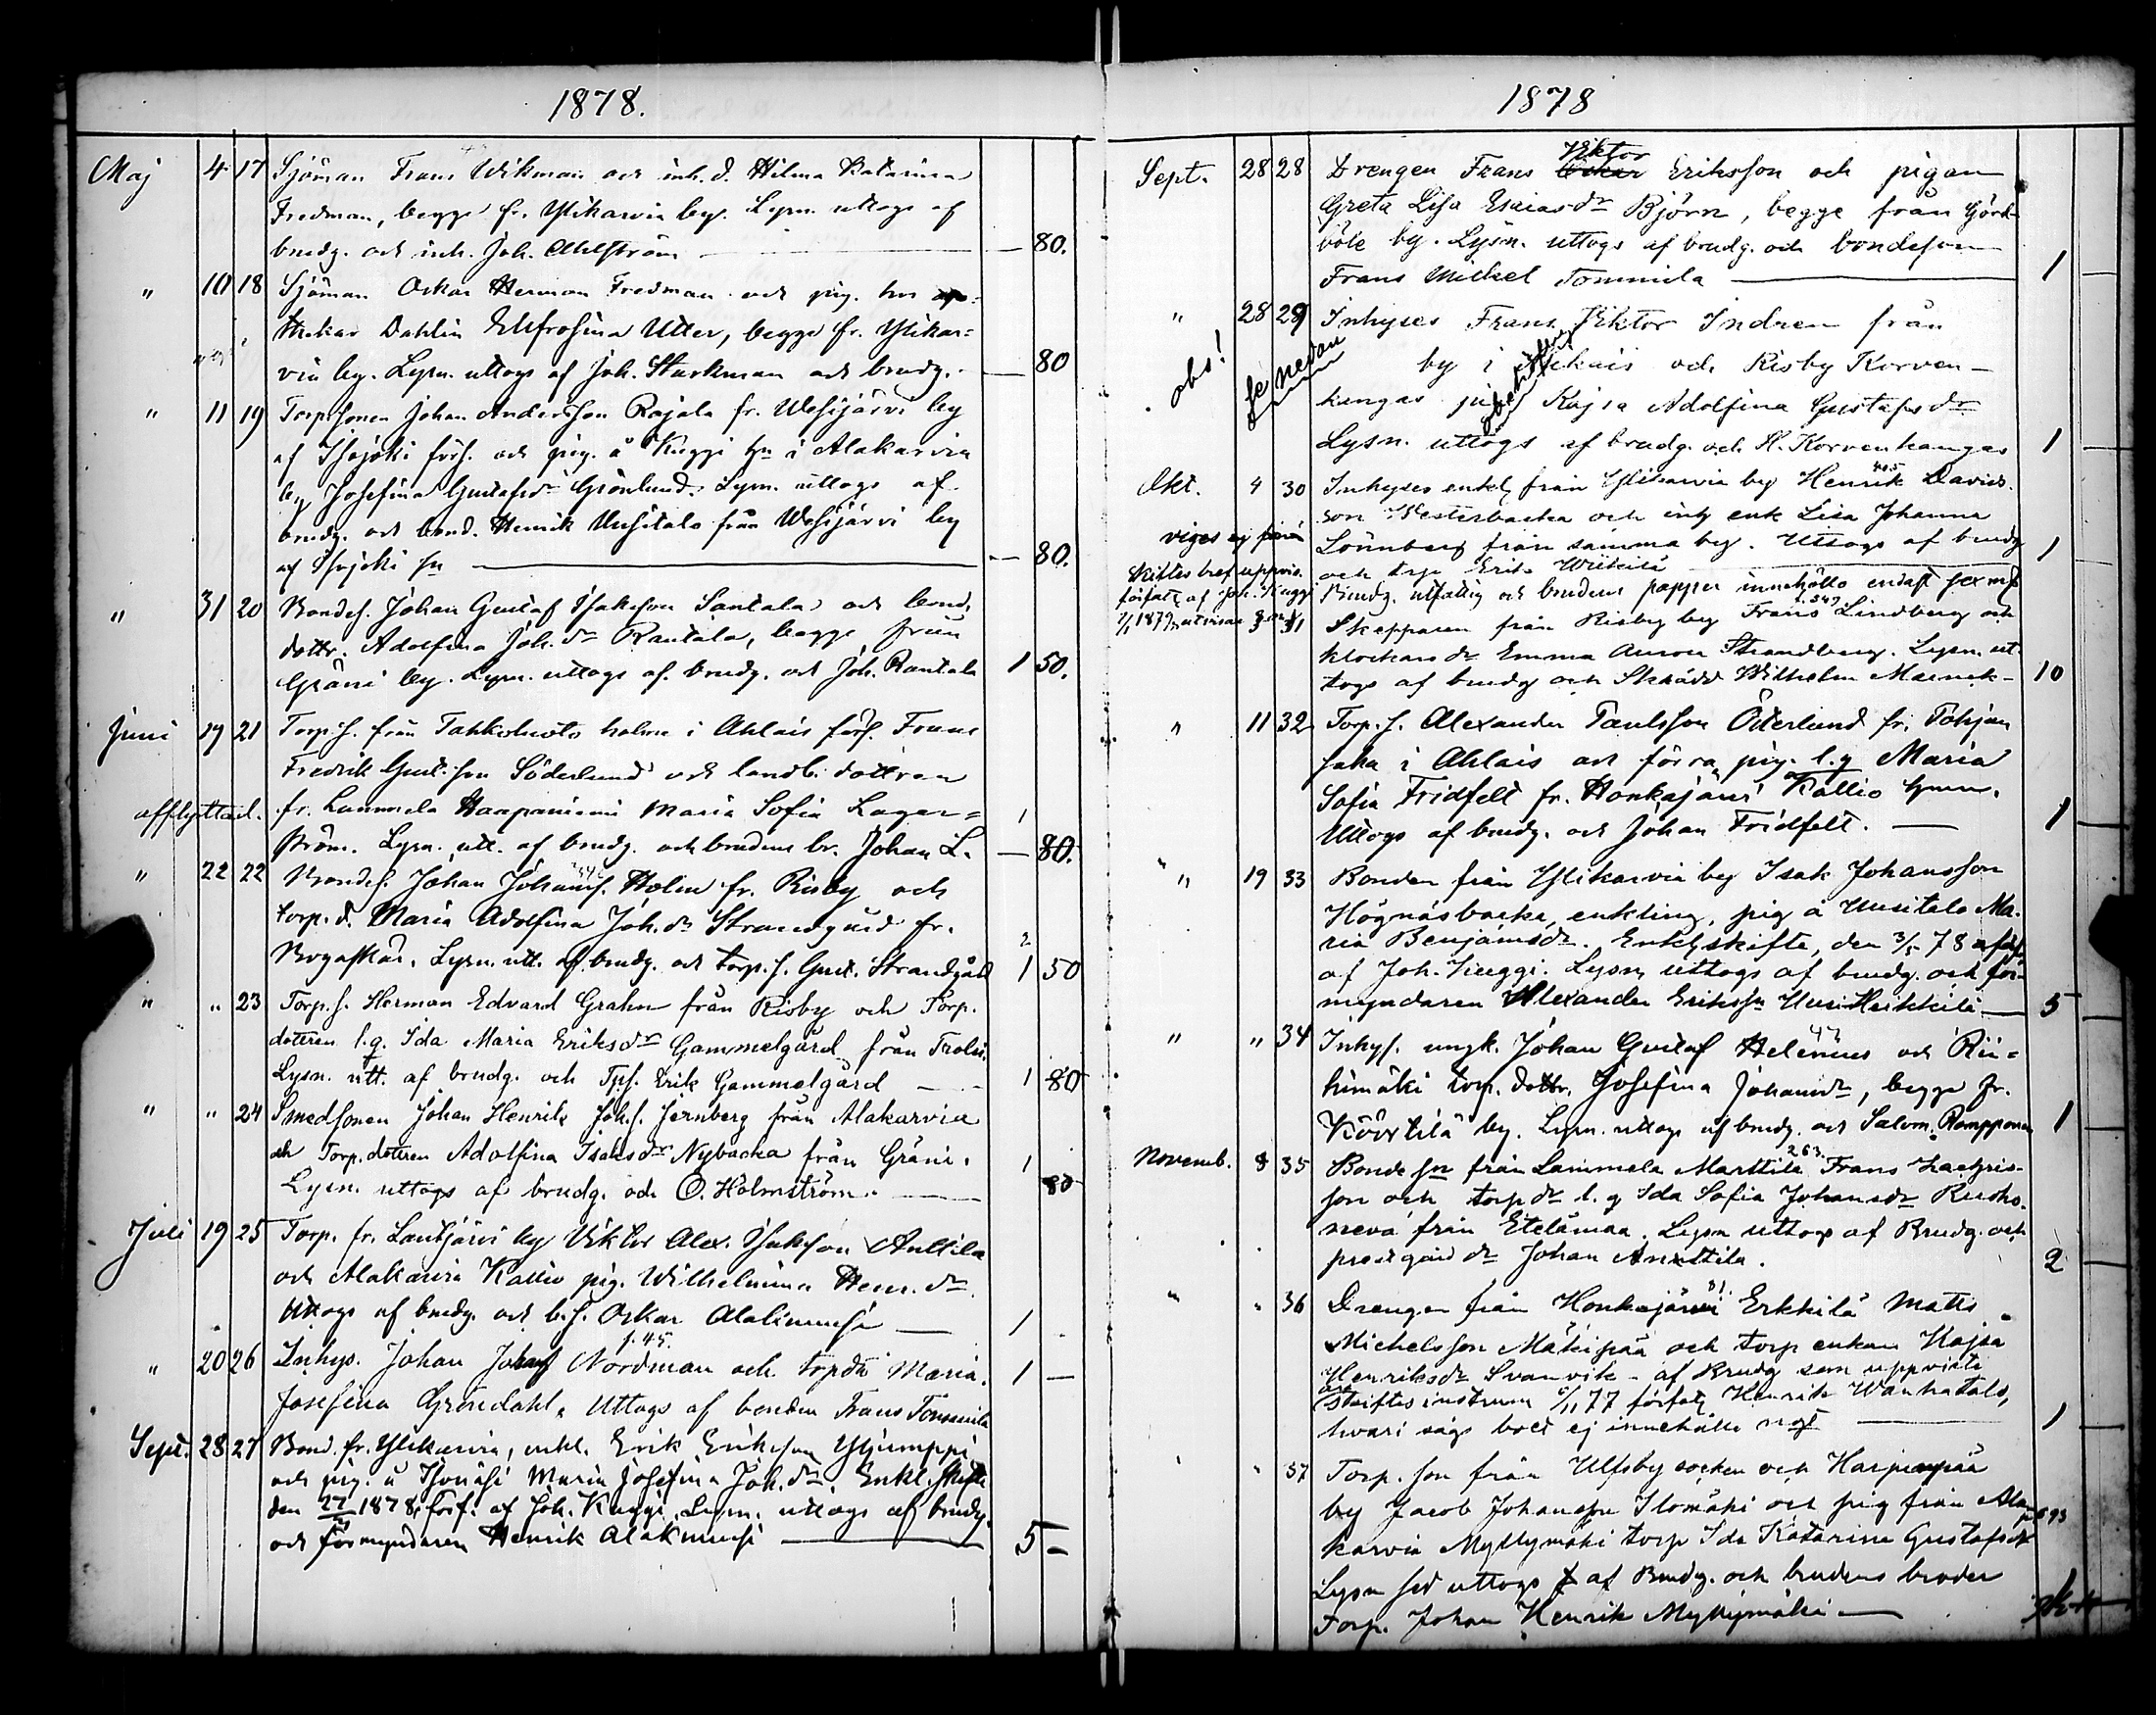 1878.
Maj 4 17 Sjöman Frans Wikman och inh. d. Hilma Katarina
Fredman, begge fr. Ylikarvia by. Lysn. uttogs af
brudg. och inh. Joh. Ahlström — 80.
" 10 18 Sjöman Oskar Herman Fredman och pig. hos apo-
thekar Dahlin Eufrosina Utter, begge fr. Ylikar-
via by. Lysn. uttogs af Joh. Starkman och brudg. — 80
" 11 19 Torpsonen Johan Andersson Rajala fr. Wesijärvi by
af Isojoki förs. och pig. å Kuggi hn i Alakarvia
by Josefina Gustafsdr Grönlund. Lysn. uttogs af
brudg. och bond. Henrik Uusitalo från Wesijärvi by
af Isojoki sn — 80.
" 31 20 Bondes. Johan Gustaf Isaksson Santala och bond.
dottr. Adolfina Joh. dr Rantala, begge från
Gräni by. Lysn. uttogs af brudg. och Joh. Rantala 1 50.
Juni 19 21 Torp. s. från Tahkoluoto holme i Ahlais förs. Frans
Fredrik Gust. son Söderlund och landb. dottren
afflyttad. fr. Lammela Haapaniemi Maria Sofia Lager= 1
ström. Lysn. utt. af brudg. och brudens br. Johan L. — 80.
" 22 22 Bondes. Johan Johans. Holm fr. Risby och
torp. d. Maria Adolfina Joh. dr Strandgård fr. 2
Bogaskär. Lysn. utt. af brudg. och torp. s. Gust. Strandgård 1 50
" " 23 Torp. s. Herman Edvard Grahn från Risby och Torp.
dotteren l. q. Ida Maria Eriksdr Gammelgård från Trols.
Lysn. utt. af brudg. och Tps. Erik Gammelgård — 1 80
" " 24 Smedsonen Johan Henrik Joh. s. Jernberg från Alakarvia
och Torp. dotteren Adolfina Isaksdr Nybacka från Gräni. 1
Lysn. uttogs af brudg. och O. Holmström. — 80
Juli 19 25 Torp. fr. Lautjärvi by Viktor Alex. Isaksson Anttila
och Alakarvia Kallio pig. Wilhelmina Henr. dr
Uttogs af brudg. och b. s. Oskar Alaliuuhsi — 1
f. 45.
" 20 26 Inhys. Johan Johans Nordman och trpdr Maria 1 —
Josefina Gröndahl. Uttogs af bonden Frans Tommila
Sept. 28 27 Bond. fr. Ylikarvia, enkl. Erik Eriksson Ylijumppi
och pig. å Isonäsi Maria Josefina Joh. dr. Enkl. skifte
den 27 1878 förf. af Joh. Kuggi. Lysn. uttogs af brudg.
och förmyndaren Henrik — 5 –
1878
Sept. 28 28 Drengen Frans Viktor Oskar Eriksson och pigan
Greta Lisa Esaiasdr Björn, begge från Görk-
böle by. Lysn. uttogs af brudg. och bondeson
Frans Mickel Tommila — 1 —
" 28 29 Inhyses Frans Viktor Indren från
obs! se nedan by i Ahlais och Risby Korven-
kangas pig. Kajsa Adolfina Gustafsdr
Lysn. uttogs af brudg. och H. Korvenkangas 1 —
Okt. 4 30 Inhyses enkl. från Ylikarvia by Henrik Davids-
son Westerbacka och inh enk Lisa Johanna
viges ej förrän Lönnberg från samma by. Uttogs af brudg 1 —
Skiftes bref uppvis. och torp Erik Wiikilä
författ. af Joh. Kuggi Brudg. utfattig och brudens papper innehålla endast sex mk
1879 utvisar 31 Skepparen från Risby by Frans Lindberg och
klockars dr Emma Aurora Strandberg. Lysn. ut-
togs af brudg och Skrädd Wilhelm Marnek- 10 —
" 11 32 Torp. s. Alexander Paulsson Österlund fr. Pohjan
saha i Ahlais och förra pig. l. q Maria
Sofia Fridfelt fr. Honkajärvi Kallio hmn.
Uttogs af brudg. och Johan Fridfelt. — 1 —
" 19 33 Bonden från Ylikarvia by Isak Johansson
Högnäsbacka, enkling, pig å Uusitalo Ma-
ria Benjamsdr. Enkl skifte, den 3/5 78 förf.
af Joh. Kuggi. Lysn uttogs af brudg. och för-
myndaren Alexander Erikssn Uusi Heikkilä — 5 —
" " 34 Inhys. ungk. Johan Gustaf Helenius och Rii-
himäki torp. dottr. Josefina Johansdr, begge fr.
Köörtilä by. Lysn. uttogs af brudg. och Salom. Ramppanen 1 —
263
Novemb. 8 35 Bonde sn från Lammela Marttila Frans Zachris-
son och torp dr l. q Ida Sofia Johansdr Ruoho-
neva från Etelämaa. Lysn uttogs af Brudg. och
prestgård dr Johan Anttila. 2 —
" " 36 Drengen från Honkajärvi Erkkilä Matts
Michelsson Mäkipää och torp enkan Kajsa
Henriksdr Svanvik – af Brudg som uppviste
arfskiftesinstrum 6/11 77 författ Henrik Wanhatalo,
hvari sägs boet ej innehålla någt — 1 —
" " 37 Torp. son från Ulfsby socken och Harjunpää
by Jacob Johansson Ilomäki och pig från Ala-
karvia Myllymäki torp Ida Katarina Gustafsdr
Lysn sed uttogs af Brudg. och brudens broder
Torp. Johan Henrik Myllymäki —